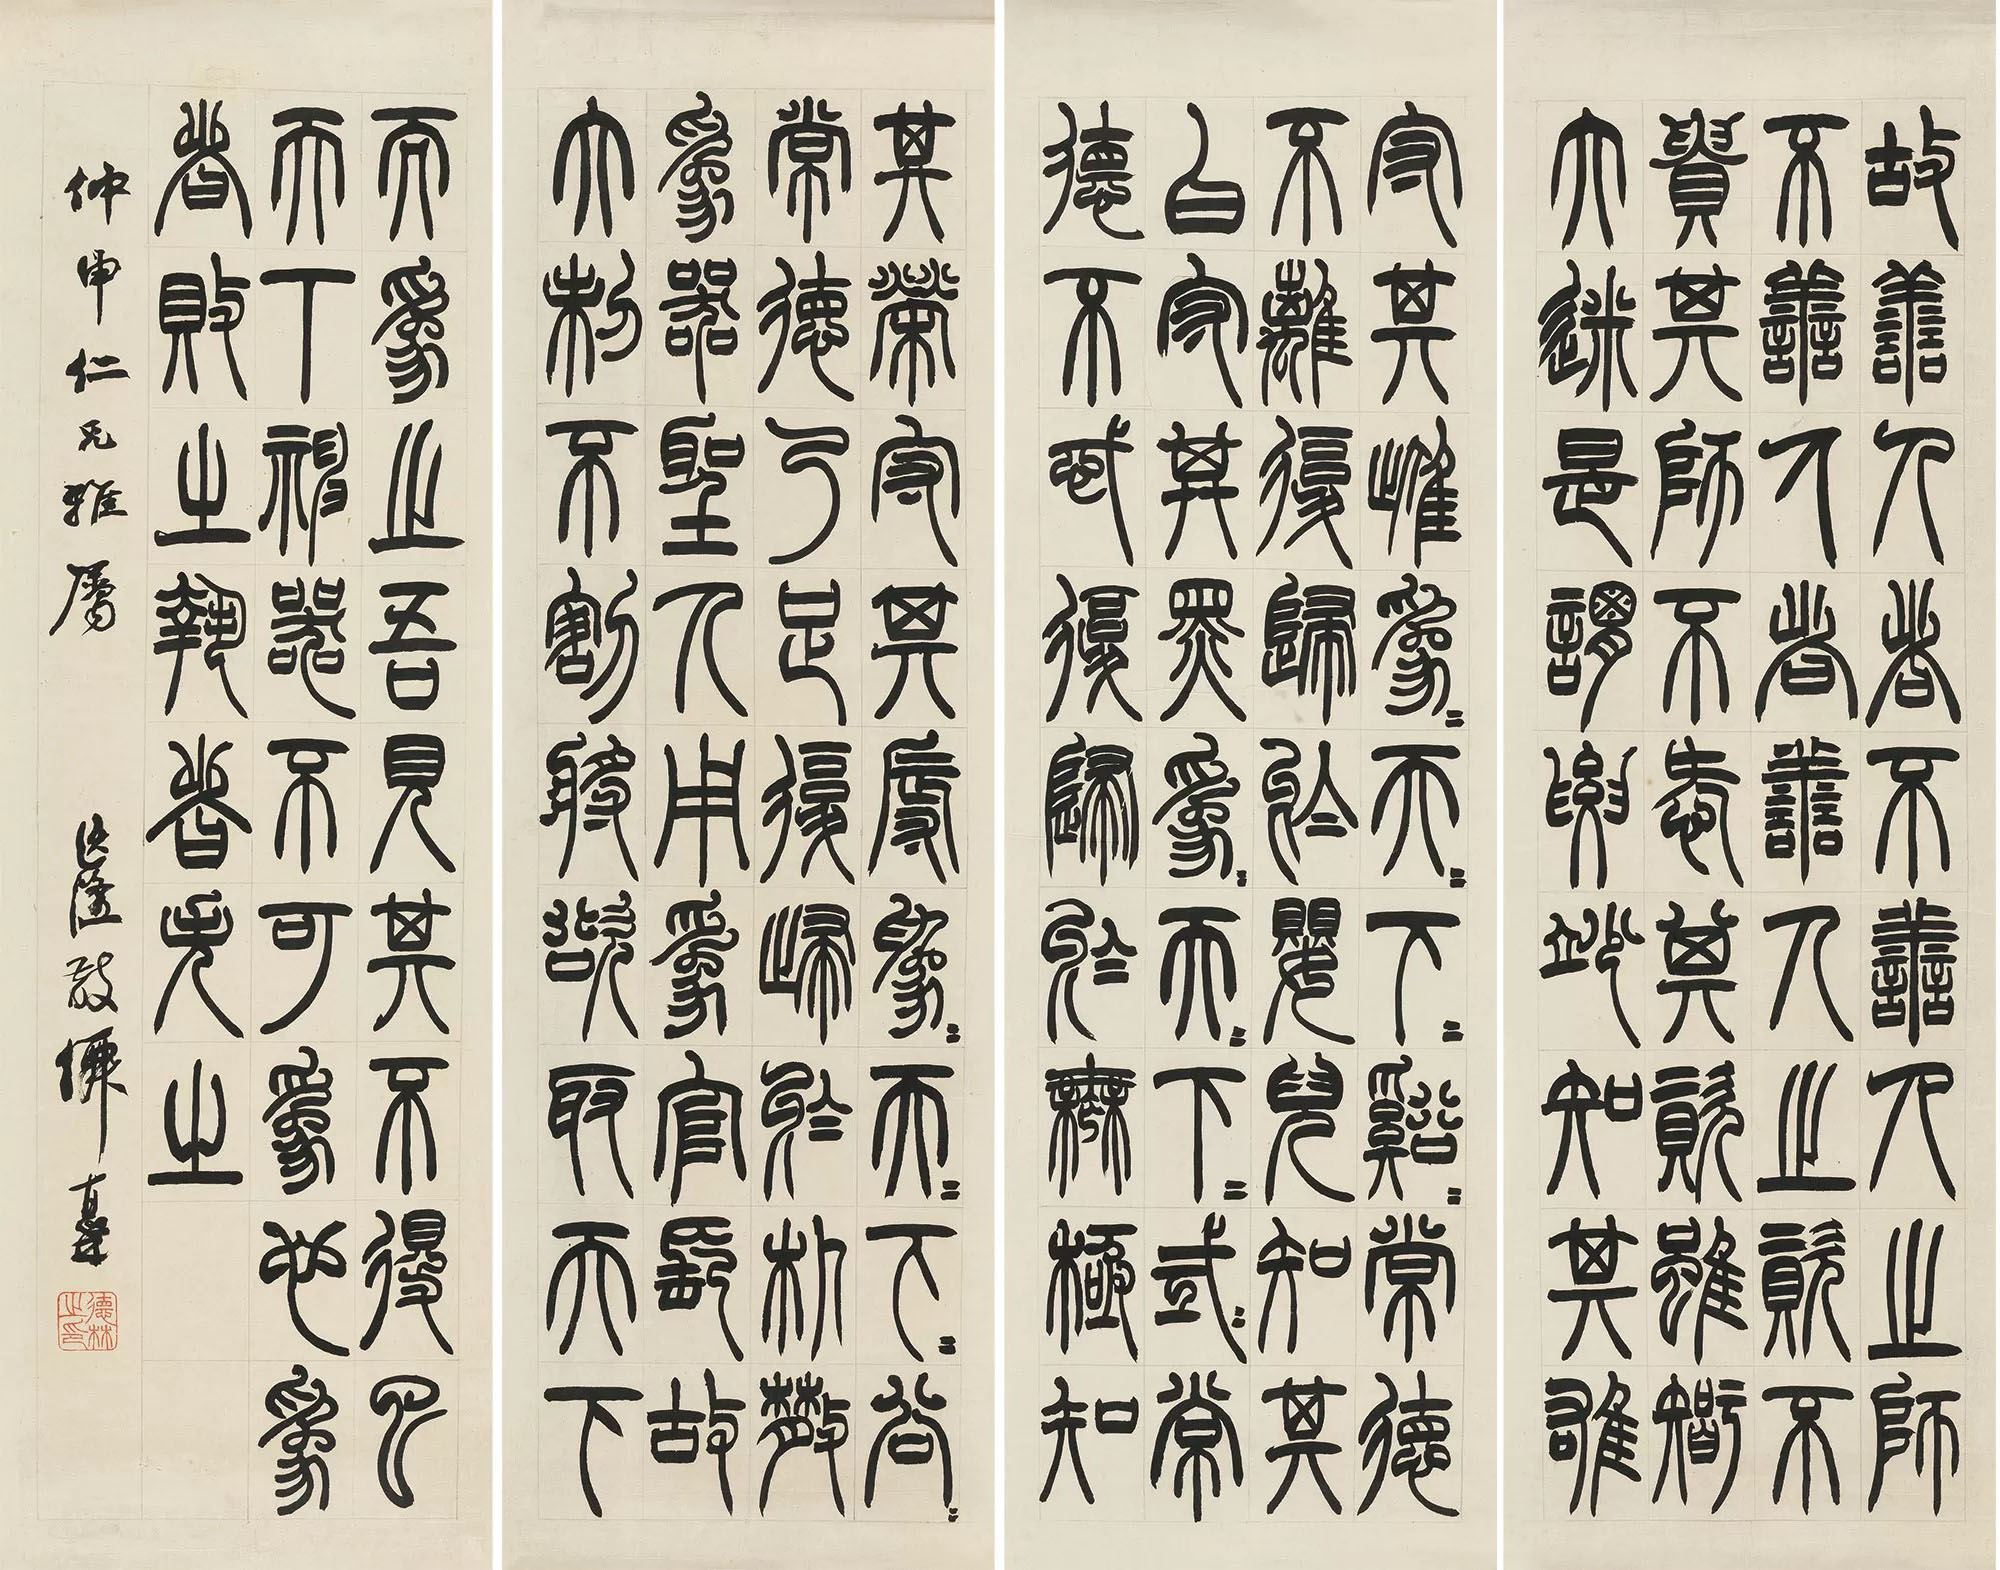 故善人者不善人之師
不善人者善人之資不
貴其師不愛其資雖智
大迷是謂要妙知其雄
守其雌爲〻天〻下〻谿〻常德
不離復歸於嬰兒知其
白守其黑爲〻天〻下〻式〻常
德不忒復歸於無極知
其榮守其辱爲〻天〻下〻谷〻
常德乃足復歸於朴散
爲器聖人用爲官長故
大制不割將欲取天下
而爲之吾見其不得已
天下神器不可爲也爲
者敗之執者失之
仲申仁兄雅屬
德林之印